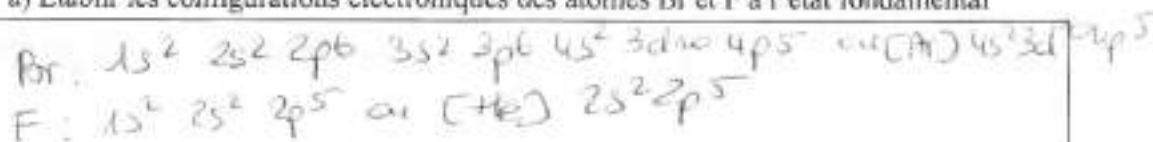 a) Etablir les configurations électroniques des atomes Br et F à l'état fondamental
Br. 1s² 2s² 2p6 3s² 3p6 4s² 3d10 4p5 ou [Ar] 4s² 3d¹⁰ 4p⁵
F : 1s² 2s² 2p⁵ ou [He] 2s² 2p⁵